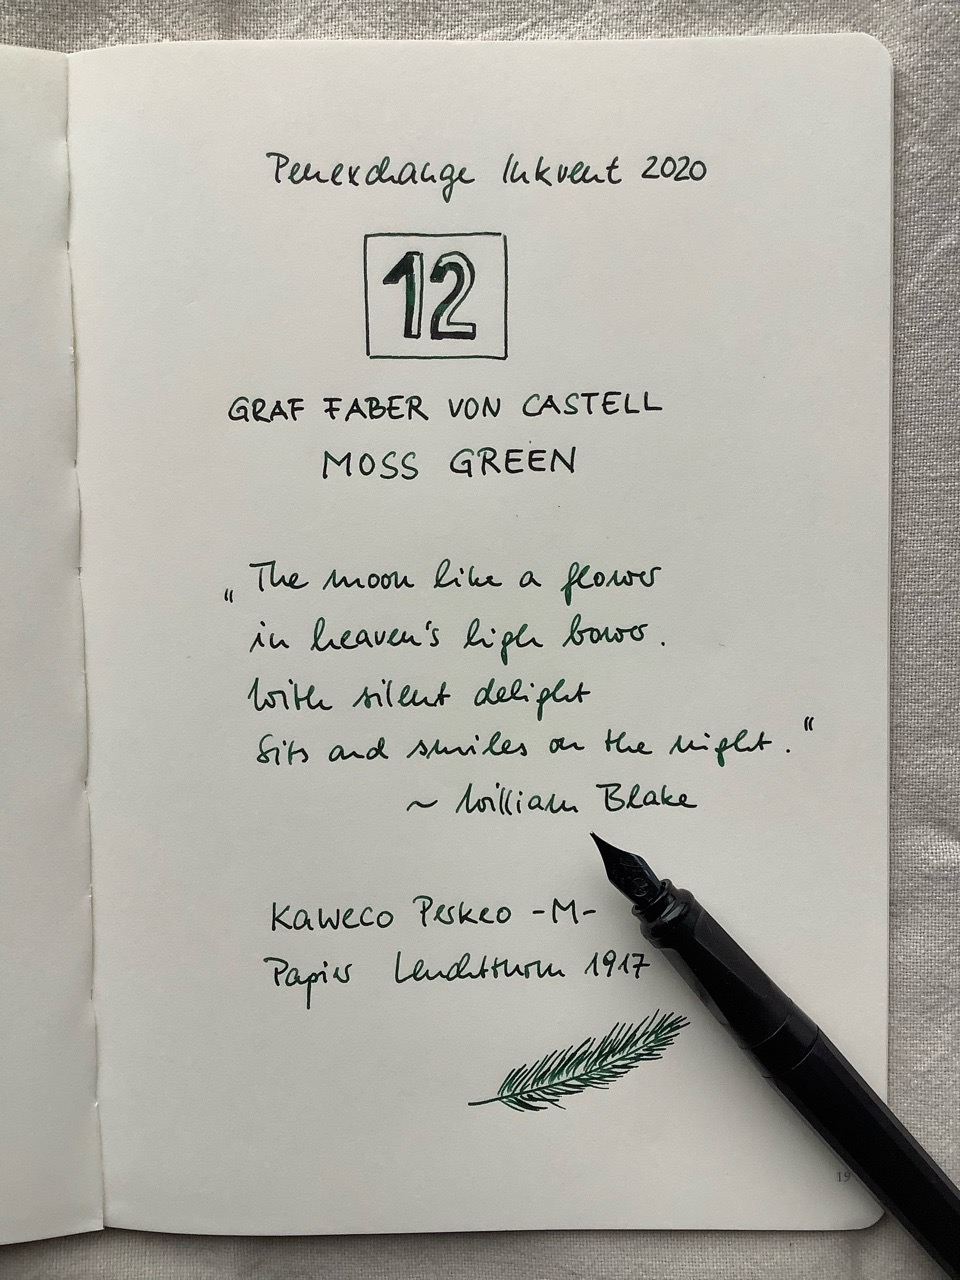 Penexchange Inkvent 2020
12
GRAF FABER VON CASTELL
MOSS GREEN
„The moon like a flower
in heaven's high bower.
With silent delight
Sits and smiles on the night.“
~ William Blake
Kaweco Perkeo -M-
Papier Leuchtturm 1917
19